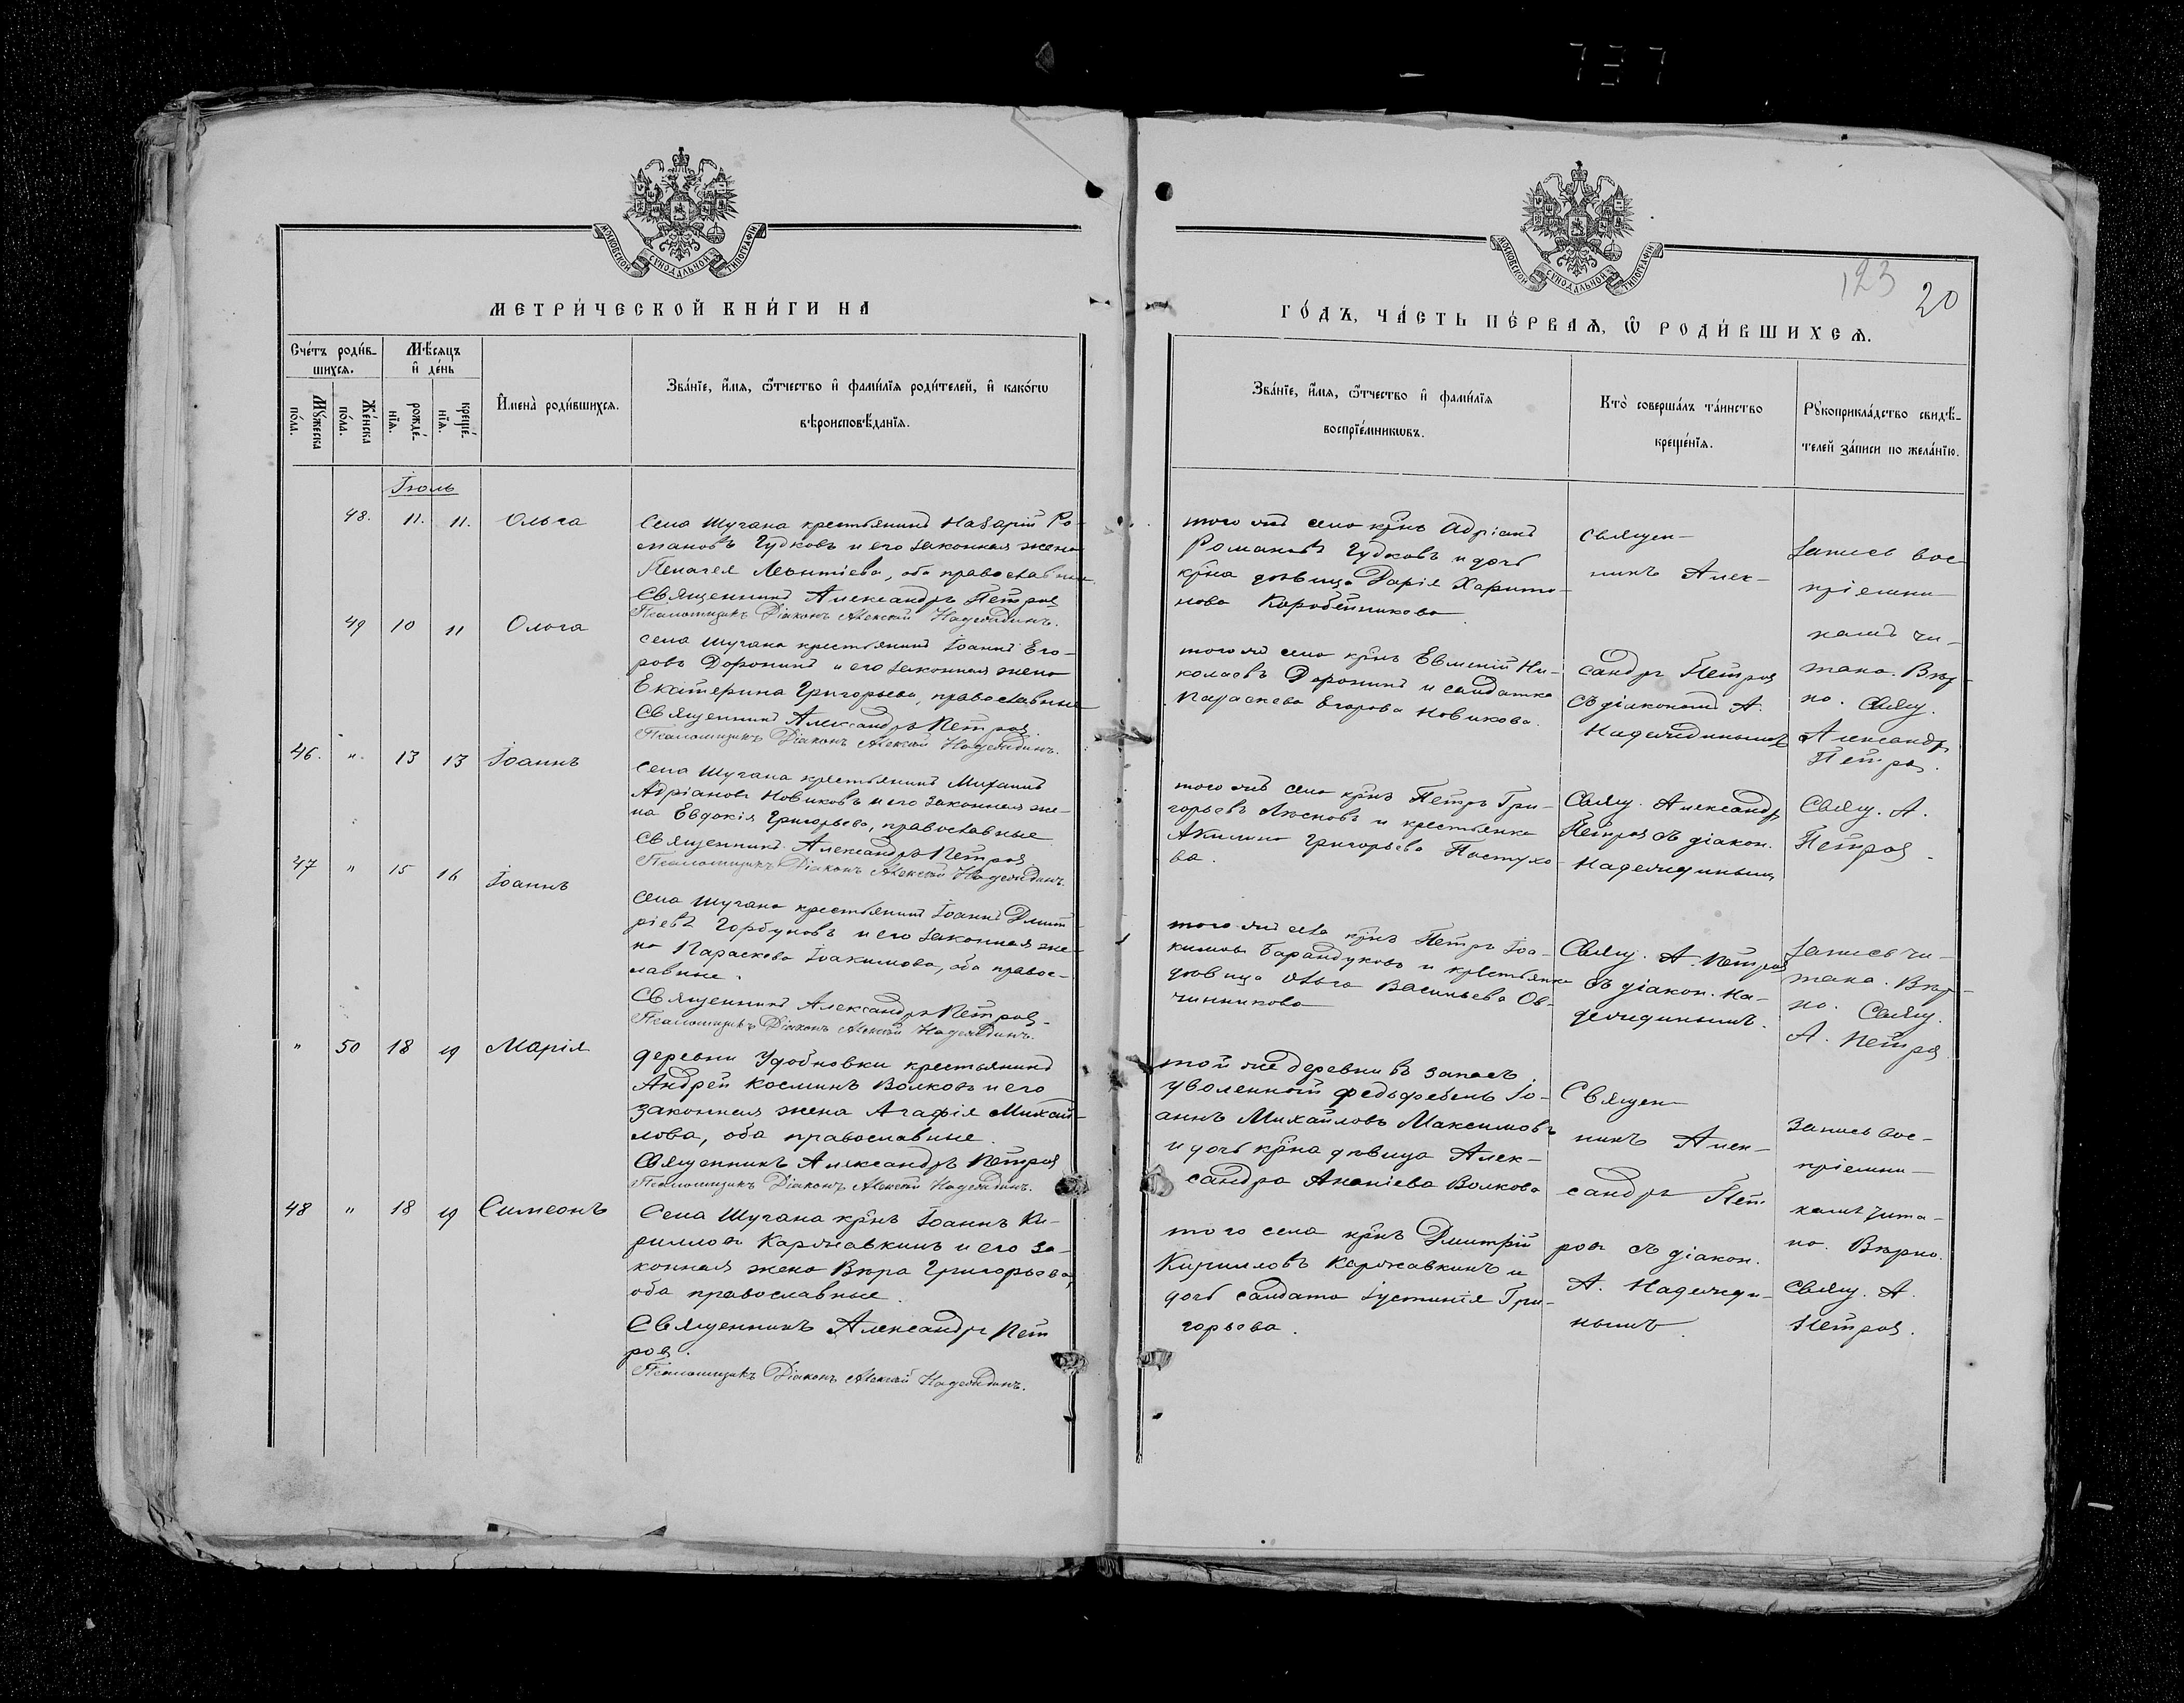 737
МОСКОВСКОЙ СѴНОДАЛЬНОЙ ТИПОГРАФІИ
МЕТРИ́ЧЕСКОЙ КНИ́ГИ НА
Сче́тъ роди́в-
шихся.
Мѣ́сяцъ
и҆ де́нь
Мꙋ́жеска
по́ла.
Же́нска
по́ла.
рожде́-
нїя.
креще́-
нїя.
И҆мена̀ роди́вшихся.
Зва́нїе, и҆́мя, ѻ҆́тчество и҆ фами́лїя роди́телей, и҆ како́гѡ
вѣроисповѣ́данїя.
Іюль
48. 11. 11. Ольга
Села Шугана крестьянинъ Назарій Ро-
мановъ Гудковъ и его законная жена
Пелагея Леонтіева, оба православные.
Священникъ Александръ Петровъ
Псаломщикъ Діаконъ Алексій Надеждинъ.
49 10 11 Ольга
Села Шугана крестьянинъ Іоаннъ Его-
ровъ Доронинъ и его законная жена
Екатерина Григорьева, православные
Священникъ Александръ Петровъ.
Псаломщикъ Діаконъ Алексій Надеждинъ.
46. " 13 13 Іоаннъ
Села Шугана крестьянинъ Михаилъ
Адріановъ Новиковъ и его законная же-
на Евдокія Григорьева, православные
Священникъ Александръ Петровъ
Псаломщикъ Діаконъ Алексій Надеждинъ.
47 " 15 16 Іоаннъ
Села Шугана крестьянинъ Іоаннъ Дмит-
ріевъ Горбуновъ и его законная же-
на Параскева Іоакимова, оба правос-
лавные.
Священникъ Александръ Петровъ.
Псаломщикъ Діаконъ Алексій Надеждинъ.
" 50 18 19 Марія
деревни Удобновки крестьянинъ
Андрей Косминъ Волковъ и его
законная жена Агафія Михай-
лова, оба православные.
Священникъ Александръ Петровъ
Псаломщикъ Діаконъ Алексій Надеждинъ.
48 " 18 19 Симеонъ
Села Шугана кр̃нъ Іоаннъ Ки-
рилловъ Каржавкинъ и его за-
конная жена Вѣра Григорьева,
оба православные.
Священникъ Александръ Пет
ровъ.
Псаломщикъ Діаконъ Алексій Надеждинъ.
МОСКОВСКОЙ СѴНОДАЛЬНОЙ ТИПОГРАФІИ
123
20
ГО́ДЪ, ЧА́СТЬ ПЕ́РВАѦ, Ѡ҆ РОДИ́ВШИХСѦ.
Зва́нїе, и҆́мя, ѻ҆́тчество и҆ фами́лїя
воспрїе́мникѡвъ.
Кто̀ соверша́лъ та́инство
креще́нїя.
Рꙋкоприкла́дство свидѣ́-
телей за́писи по жела́нїю.
того же села кр̃нъ Адріанъ
Романовъ Гудковъ и дочь
кр̃на дѣвица Дарія Харито-
нова Коробейникова.
того же села кр̃нъ Евменій Ни-
колаевъ Доронинъ и солдатка
Параскева Егорова Новикова.
Священ-
никъ Алек-
сандръ Петровъ
съ діакономъ А.
Надеждинымъ
Запись вос
пріемни-
камъ чи-
тана. Вѣр-
но. Свящ.
Александр
Петровъ.
того же села кр̃нъ Петръ Гри-
горьевъ и крестьянка
Акилина Григорьева Пастухо-
ва.
Свящ. Александр
Петровъ съ діакон.
Надеждинымъ
Свящ. А.
Петровъ.
того же села кр̃нъ Петръ Іоа-
кимовъ Барандуковъ и крестьянка
дѣвица Ольга Васильева Ов-
чинникова
Свящ. А. Петровъ
съ діакон. На-
деждинымъ.
Запись чи-
тана. Вѣр-
но. Свящ.
А. Петровъ
той же деревни въ запасъ
уволенный федьфебель Іо-
аннъ Михайловъ Максимовъ
и дочь кр̃на дѣвица Алек-
сандра Ананіева Волкова
того села кр̃нъ Дмитрій
Кирилловъ Каржавкинъ и
дочь солдата Іустинія Гри-
горьева.
Священ
никъ Алек-
сандръ Пет
ровъ съ діакон.
А. Надежди-
нымъ.
Запись вос-
пріемни-
камъ чита-
на. Вѣрно.
Свящ. А.
Петровъ.